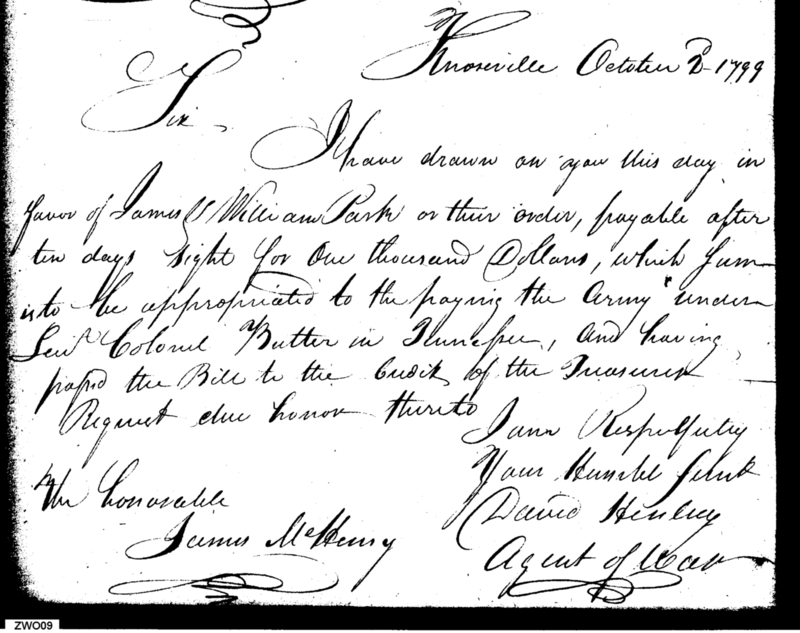 Knoxville October 2d 1799
Sir
I have drawn on you this day in
favor of James & William Park or their order, payable after
ten days sight for One thousand Dollars, which sum
is to be appropriated to the paying the Army under
Leiut Colonel Butler in Tennessee, and having
passed the Bill to the Credit of the Treasurer
Request due honor thereto
I am Respectfully
Your Humble Servt
David Henley
Agent of War
The honorable
James McHenry
ZWO09